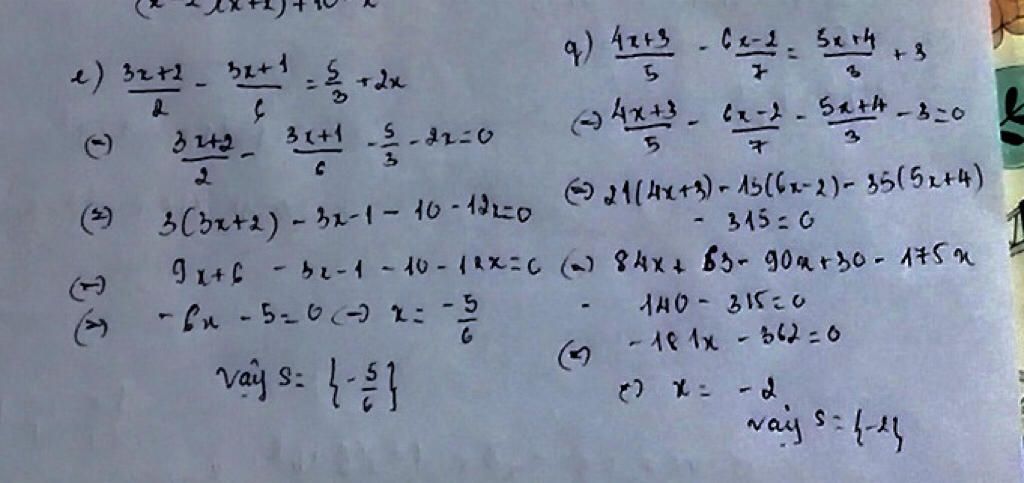 (x-2)(x+2)+10 x
e) \frac{3x+2}{2} - \frac{3x+1}{6} = \frac{5}{3} + 2x
(=) \frac{3x+2}{2} - \frac{3x+1}{6} - \frac{5}{3} - 2x=0
(=) 3(3x+2) - 3x-1 - 10 - 12x=0
(=) 9x+6 - 3x-1 - 10 - 12x=0
(=) -6x - 5=0 (=) x= -\frac{5}{6}
Vậy S= {-\frac{5}{6}}
g) \frac{4x+3}{5} - \frac{6x-2}{7} = \frac{5x+4}{3} + 3
(=) \frac{4x+3}{5} - \frac{6x-2}{7} - \frac{5x+4}{3} - 3=0
(=) 21(4x+3) - 15(6x-2) - 35(5x+4)
- 315=0
(=) 84x + 63 - 90x+30 - 175x
- 140 - 315=0
(=) -181x - 362=0
(=) x= -2
Vậy S= {-2}